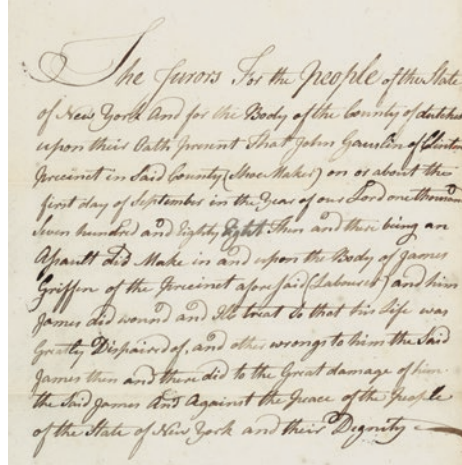 The Jurors For the People of the State
of New York And for the Body of the County of dutchess
upon their Oath present That John Gauslin of Clinton
Precinct in Said County (Shoe Maker) on or about the
first day of September in the Year of our Lord one thousand
Seven hundred and Eighty Eight then and there being an
Assault did Make in and upon the Body of James
Griffin of the Precinct afore Said (Labourer) and him
James did wound and Ill treat So that his Life was
Greatly Dispaired of, and other wrongs to him the Said
James then and there did to the Great damage of him
the Said James And Against the Peace of the People
of the State of New York and their Dignity